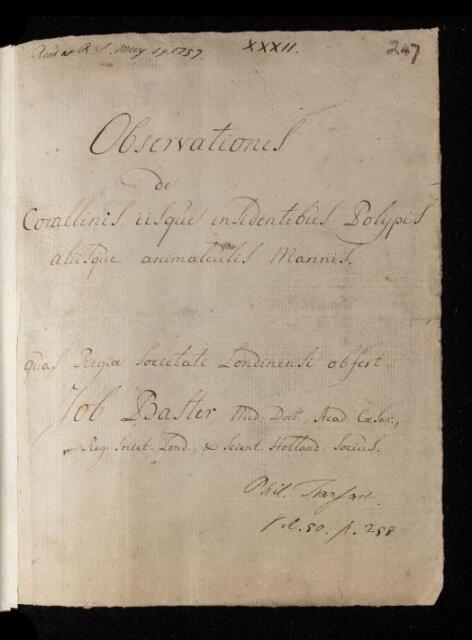 Read at R. S. May 19. 1757. XXXII. 247
Observationes
de
Corallinis, iisque insidentibus Polypis
aliisque animalculis Marinis,
quas Regiæ Societati Londinensi offert
Job Baster, Med. Doct., Acad. Cæsar.,
Reg. Societ. Lond., & Scient. Holland. Socius.
Phil. Transact.
Vol. 50. p. 258